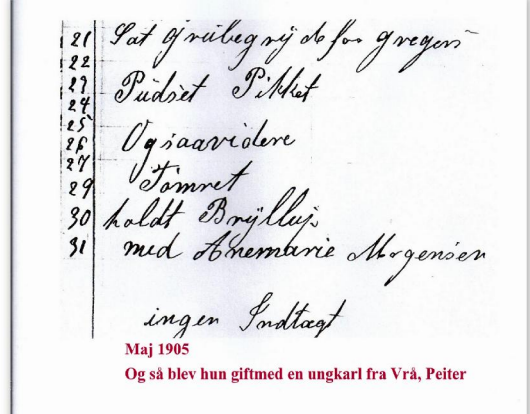 21 Sat Grubegryde for Gregers
22
23 Pudset Pikket
24
25
26 Ogsaavidere
27
29 Tømret
30 holdt Bryllup
31 med Anemarie Mogensen
ingen Indtægt
Maj 1905
Og så blev hun giftmed en ungkarl fra Vrå, Peiter